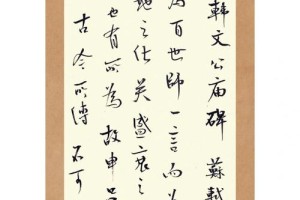 韓文公庙碑 蘇軾
為百世師一言而為
地之化关盛衰之
也有所為故申吕
古今所傳不可